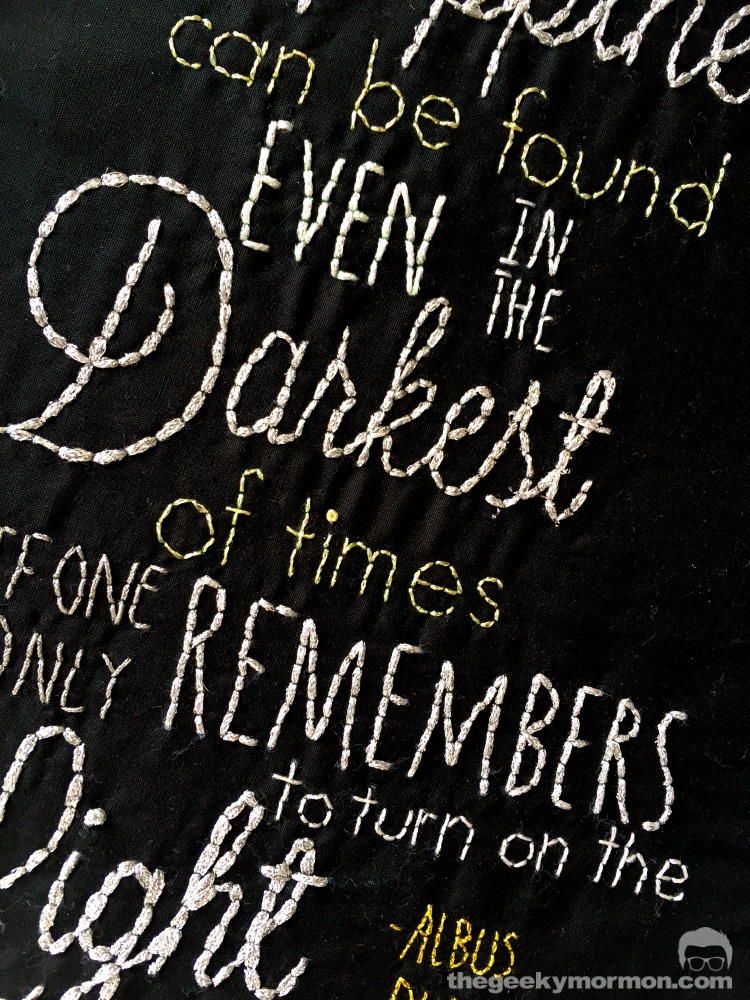 can be found
EVEN IN
THE
Darkest
of times
IF ONE
ONLY REMEMBERS
to turn on the
Light
-ALBUS
thegeekymormon.com